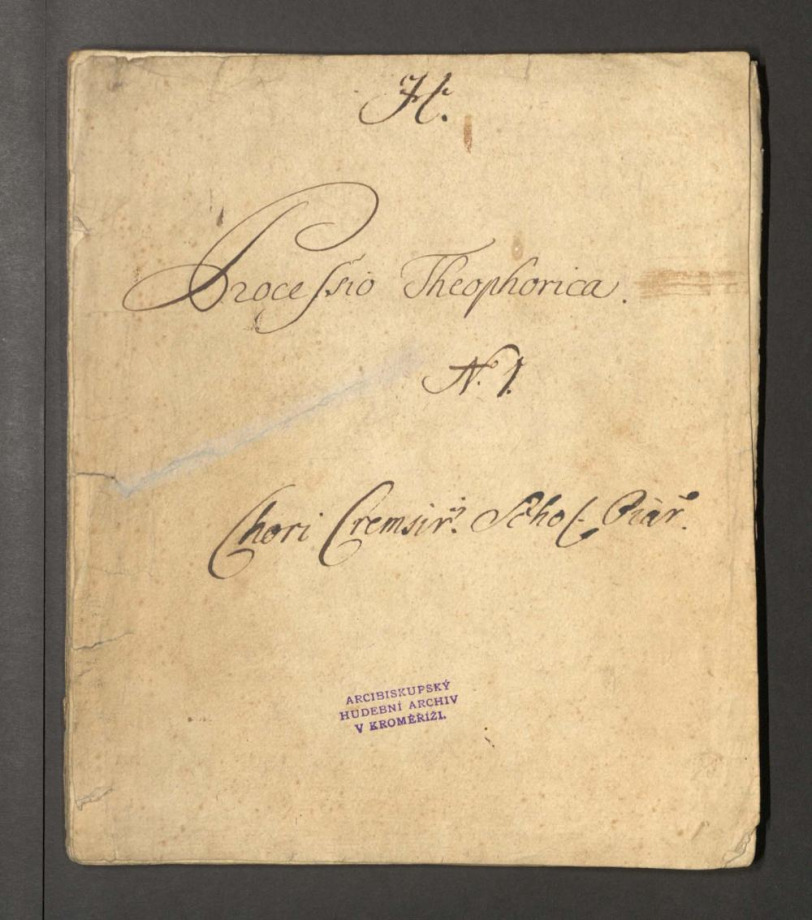 H.
Processio Theophorica.
N. 1.
Chori Cremsir. Schol. Piar.
ARCIBISKUPSKÝ
HUDEBNÍ ARCHIV
V KROMĚŘÍŽI.